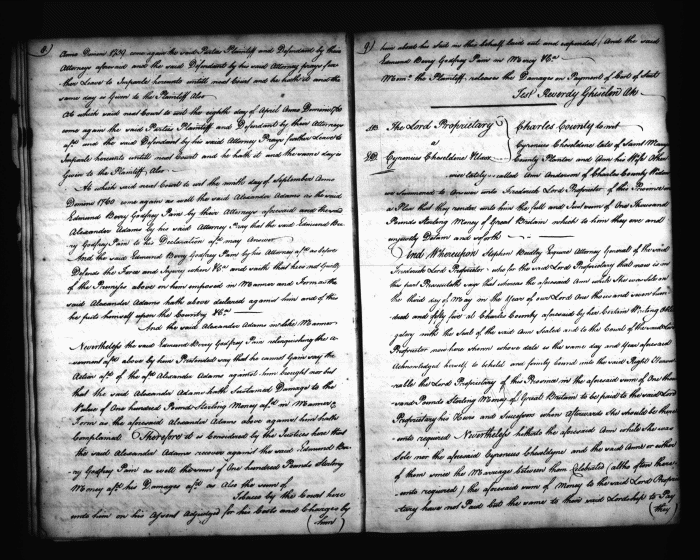 8)
Anno Domini 1759 come again the said Parties Plaintiff and Defendant by their
Attorneys aforesaid and the said Defendant by his said Attorney prays fur-
ther Leave to Imparle hereunto untill next Court and he hath it and the
same day is Given to the Plaintiff Also
At which said next Court to wit the eighth day of April Anno Domini 1760
come again the said Parties Plaintiff and Defendant by their Attorneys
afd and the said Defendant by his said Attorney Prays further Leave to
Imparle hereunto untill next Court and he hath it and the same day is
Given to the Plaintiff Also
At which said next Court to wit the ninth day of September Anno
Domini 1760 come again as well the said Alexander Adams as the said
Edmund Berry Godfrey Pain by their Attorneys aforesaid and the said
Alexander Adams by his said Attorney Pray that the said Edmund Ber-
ry Godfrey Pain to his Declaration afd may Answer
And the said Edmund Berry Godfrey Pain by his Attorney afd as before
Defends the Force and Injury when &ca and saith that he is not Guilty
of the Premises above on him imposed in Manner and Form as the
said Alexander Adams hath above declared against him and of this
he puts himself upon the Country &ca
And the said Alexander Adams in like Manner
Nevertheless the said Edmund Berry Godfrey Pain relinquishing the a-
verment afd above by him Pretended say that he cannot Gain say the
Action afd of the afd Alexander Adams against him brought nor but
that the said Alexander Adams hath Sustained Damage to the
Value of One hundred Pounds Sterling Money afd in Manner &
Form as the aforesaid Alexander Adams above against him hath
Complained Therefore it is Considered by the Justices here that
the said Alexander Adams recover against the said Edmund Ber-
ry Godfrey Pain as well the sum of One hundred Pounds Sterling
Money afd his Damages afd as Also the sum of
Tobacco by the Court here
unto him on his Assent Adjudged for his Costs and Charges by
(him)
9) him about his Suit in this behalf laid out and expended / And the said
Edmund Berry Godfrey Pain in Mercy &ca
Mem. the Plaintiff releases the Damages on Payment of Cost of Suit
Test Reverdy Ghiselin
The Lord Proprietary
a
Cyrenius Cheveldene Uxor
Charles County to wit
Cyrenius Cheveldene late of Saint Marys
County Planter and Ann his Wife Other-
wise lately called Ann Anderson of Charles County Widow
were Summoned to Answer unto Frederick Lord Proprietor of this Province in
a Plea that they render unto him the full and Just sum of One Thousand
Pounds Sterling Money of Great Britain which to him they owe and
unjustly Detain and so forth
And Whereupon Stephen Bordley Esquire Attorney General of the said
Frederick Lord Proprietor who for the said Lord Proprietary that now is in
this part Prosecuteth says that whereas the aforesaid Ann while She was Sole on
the third day of May in the Year of our Lord One thousand seven hun-
dred and fifty five at Charles County aforesaid by her Certain Writing Obli-
gatory with the Seal of the said Ann Sealed and to the Court of the said Lord
Proprietor now here shewn whose date is the same day and Year aforesaid
Acknowledged herself to be held and firmly bound unto the said Right Honou-
rable the Lord Proprietary of this Province in the aforesaid sum of One thou-
sand Pounds Sterling Money of Great Britain to be paid to the said Lord
Proprietary his Heirs and Successors when afterwards She should be there-
unto required Nevertheless hath the aforesaid Ann while She was
Sole nor the aforesaid Cyrenius Cheveldene and the said Ann or either
of them since the Marriage between them Celebrated (altho often there-
unto required) the aforesaid sum of Money to the said Lord Proprie-
tary have not Paid but the same to their said Lordships to Pay
(they)